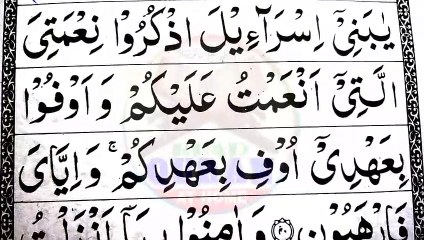 يٰبَنِيْۤ اِسْرَآءِيْلَ اذْكُرُوْا نِعْمَتِيَ
الَّتِيْۤ اَنْعَمْتُ عَلَيْكُمْ وَ اَوْفُوْا
بِعَهْدِيْۤ اُوْفِ بِعَهْدِكُمْۚ وَ اِيَّايَ
فَارْهَبُوْنِ ۝۴۰ وَ اٰمِنُوْا بِمَاۤ اَنْزَلْتُ